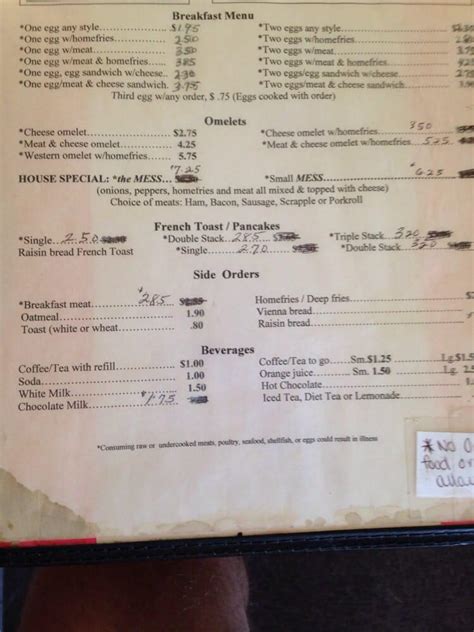 Breakfast Menu
*One egg any style........ 1.95
*One egg w/homefries... 2.50
*One egg w/meat........... 3.50
*One egg w/meat & homefries... 3.85
*One egg, egg sandwich w/cheese.. 2.30
*One egg/meat & cheese sandwich. 3.75
*Two eggs any style
*Two eggs w/homefries
*Two eggs w/meat
*Two eggs w/meat & homefries 4.25
*Two eggs/egg sandwich w/cheese
*Two eggs/meat & cheese sandwich. 3.90
Third egg w/any order, $ .75 (Eggs cooked with order)
Omelets
*Cheese omelet $2.75
*Meat & cheese omelet 4.25
*Western omelet w/homefries 5.75
*Cheese omelet w/homefries 3.50
*Meat & cheese omelet w/homefries 5.25
HOUSE SPECIAL: *the MESS... $7.25
*Small MESS $6.25
(onions, peppers, homefries and meat all mixed & topped with cheese)
Choice of meats: Ham, Bacon, Sausage, Scrapple or Porkroll
French Toast / Pancakes
*Single 2.50 *Double Stack 2.85 *Triple Stack 3.20
Raisin bread French Toast *Single 2.70 *Double Stack 3.20
Side Orders
*Breakfast meat $2.85
Oatmeal 1.90
Toast (white or wheat .80
Homefries / Deep fries
Vienna bread
Raisin bread
Beverages
Coffee/Tea with refill $1.00
Soda 1.00
White Milk 1.50
Chocolate Milk $1.75
Coffee/Tea to go Sm.$1.25 Lg.$1.5
Orange juice Sm. 1.50 Lg. 2.5
Hot Chocolate
Iced Tea, Diet Tea or Lemonade
*Consuming raw or undercooked meats, poultry, seafood, shellfish, or eggs could result in illness
*NO O
food or
allow